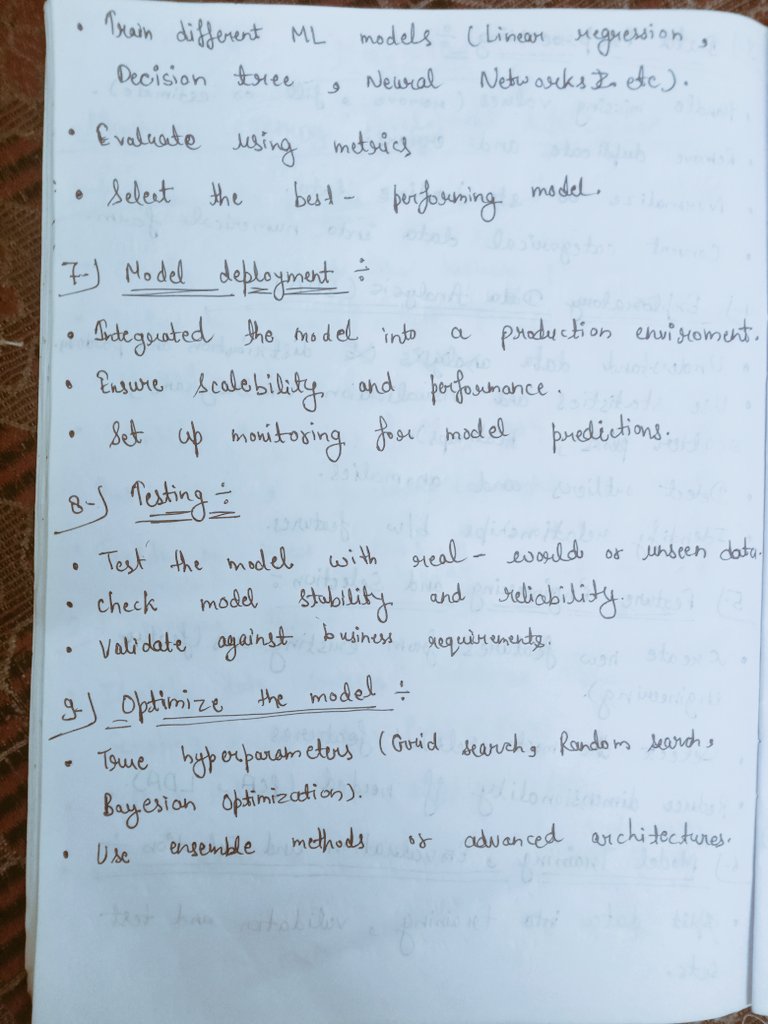 • Train different ML models (Linear regression,
Decision tree, Neural Networks etc).
• Evaluate using metrics
• Select the best - performing model.
7-) Model deployment ÷
• Integrated the model into a production enviroment.
• Ensure scalebility and performance.
• Set up monitoring for model predictions.
8-) Testing ÷
• Test the model with real - world or unseen data.
• check model stability and reliability.
• Validate against business requirements.
9-) Optimize the model ÷
• True hyperparameters (Grid search, Random search,
Bayesian Optimization).
• Use ensemble methods or advanced architectures.